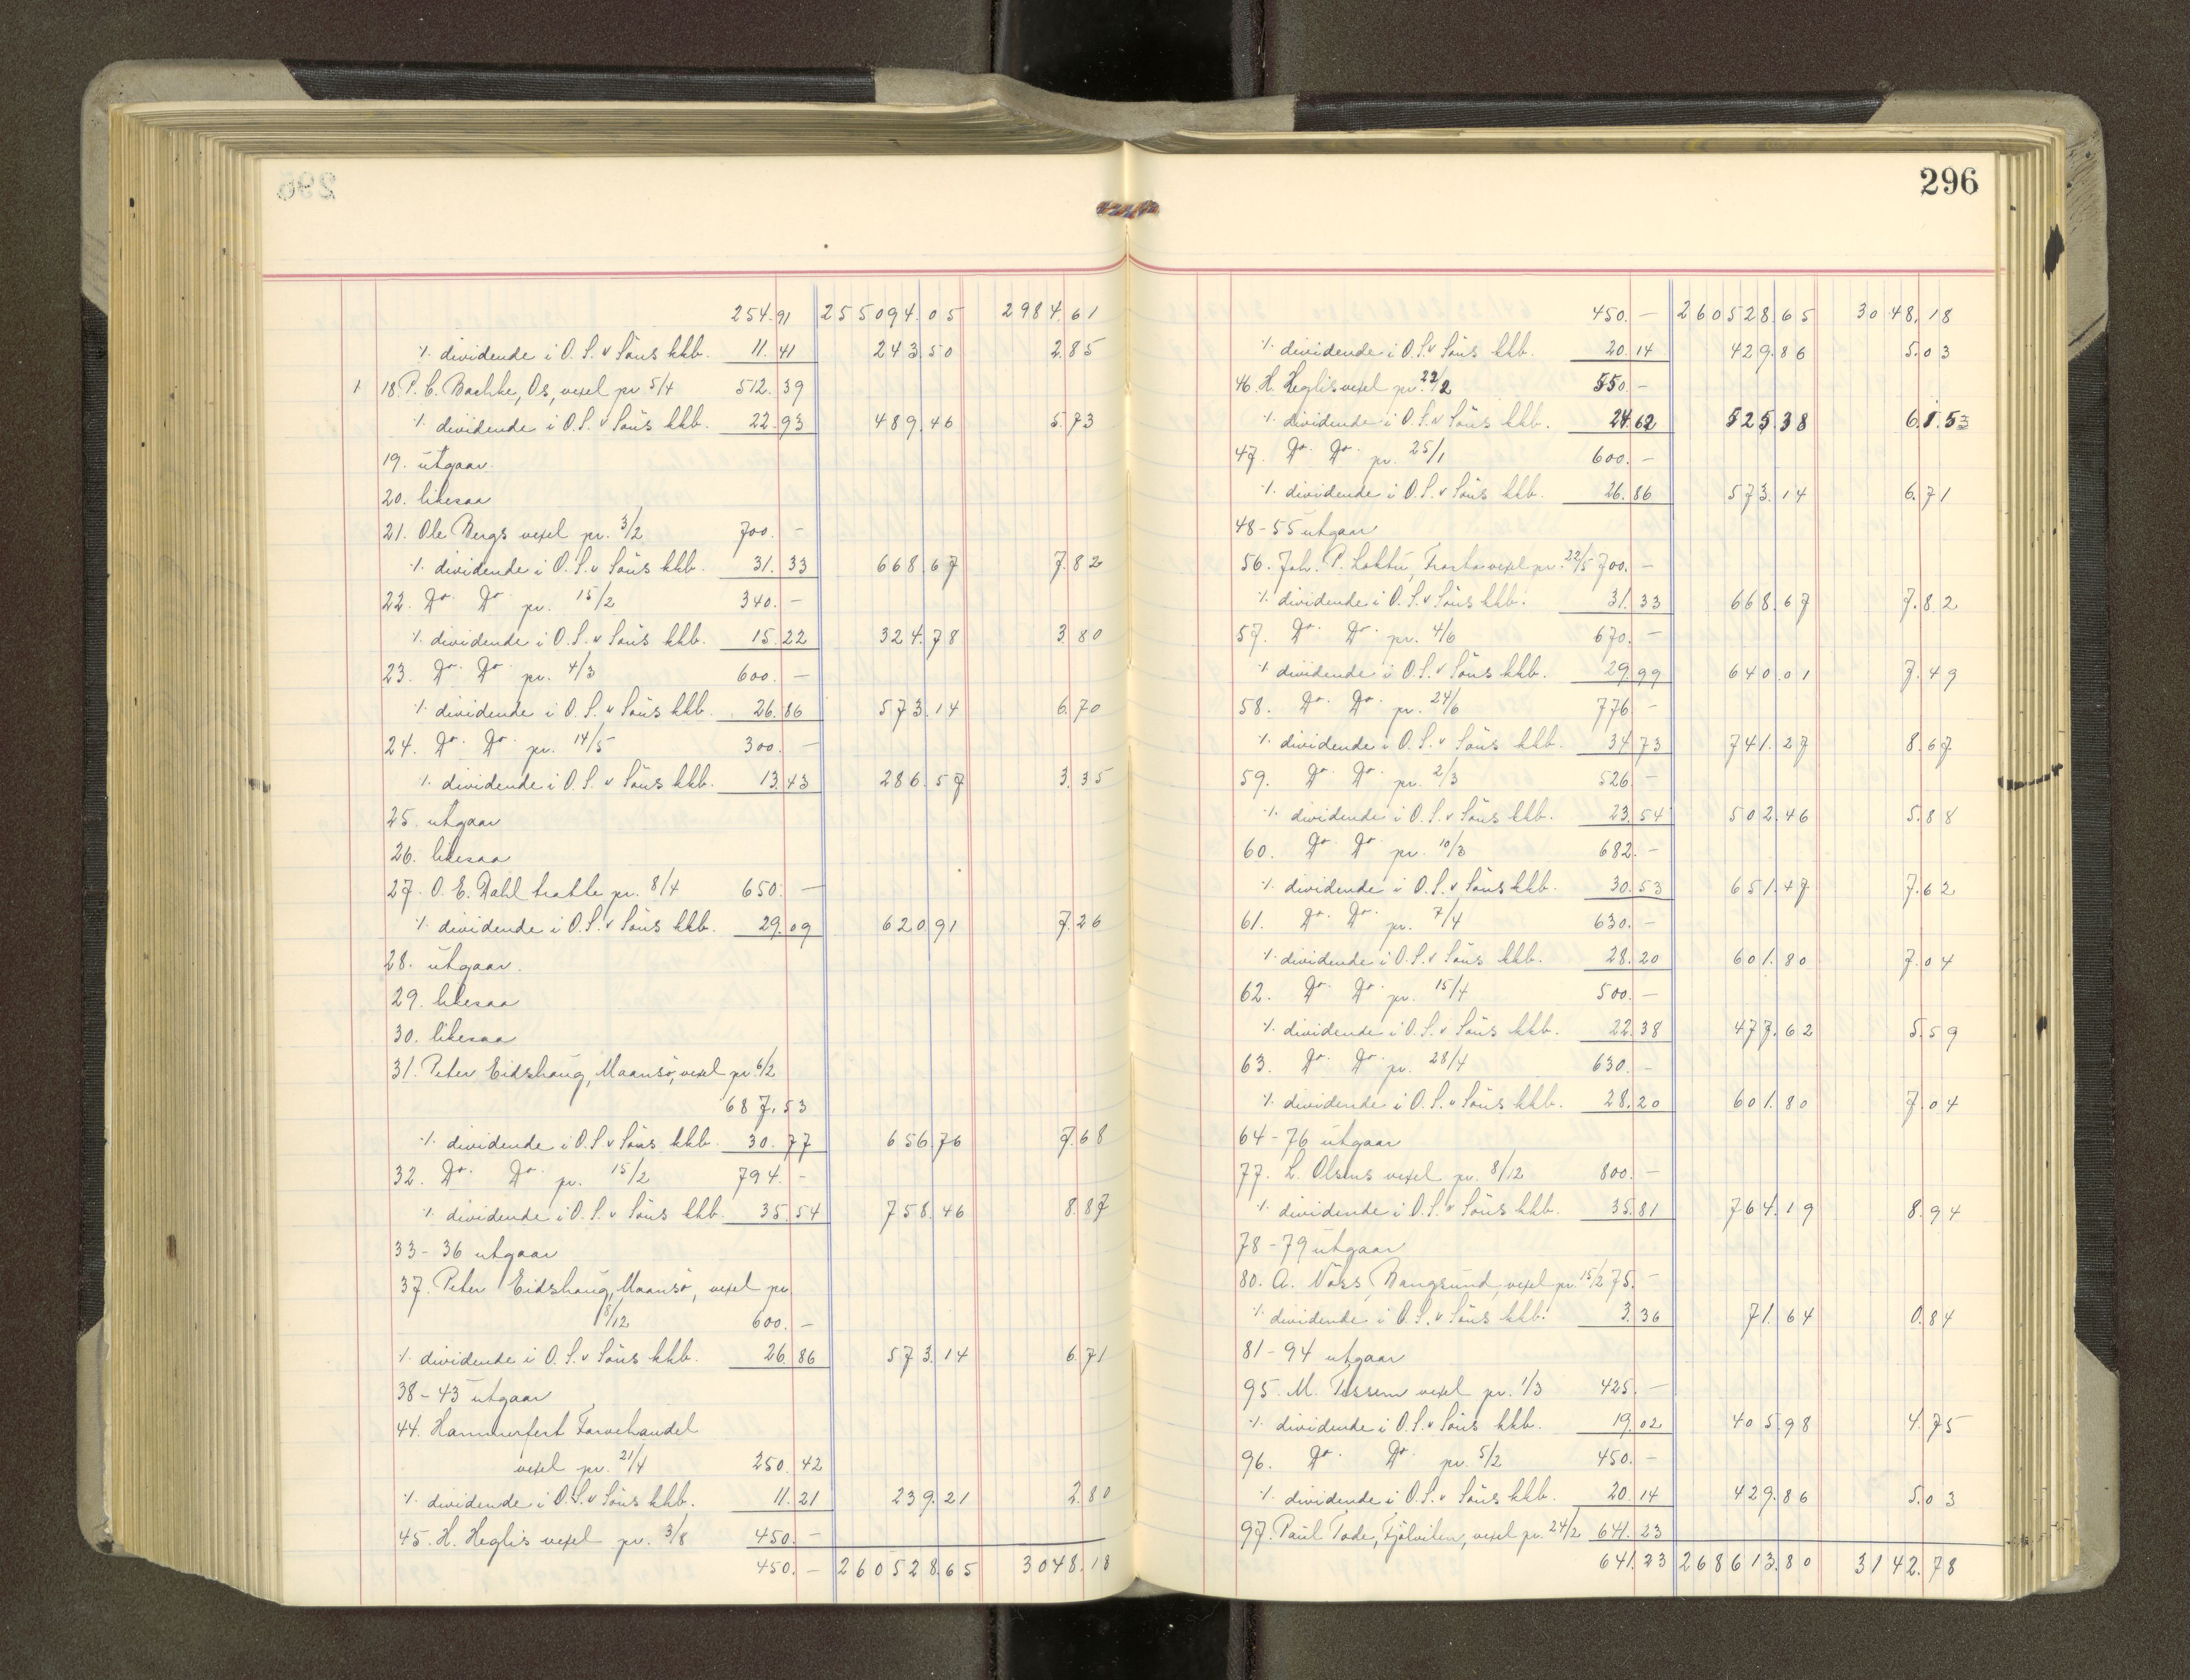 296
254.91 255094.05 2984.61
·/· dividende i O. S. & Söns kkb. 11.41 243.50 2.85
1 18. P. C. Bachke, Os, vexel pr. 5/4 512.39
·/· dividende i O. S. & Söns kkb. 22.93 489.46 5.73
19. utgaar.
20. likesaa
21. Ole Bergs vexel pr. 3/2 700.-
·/· dividende i O. S. & Söns kkb. 31.33 668.67 7.82
22. Do. Do. pr. 15/2 340.-
·/· dividende i O. S. & Söns kkb. 15.22 324.78 3.80
23. Do. Do. pr. 4/3 600.-
·/· dividende i O. S. & Söns kkb. 26.86 573.14 6.70
24. Do. Do. pr. 14/5 300.-
·/· dividende i O. S. & Söns kkb. 13.43 286.57 3.35
25. utgaar
26. likesaa
27. O. E. Dahl tratte pr. 8/4 650.-
·/· dividende i O. S. & Söns kkb. 29.09 620.91 7.26
28. utgaar.
29. likesaa
30. likesaa
31. Peter Eidshaug, Maansö, vexel pr. 6/2
687.53
·/· dividende i O. S. & Söns kkb. 30.77 656.76 7.68
32. Do. Do. pr. 15/2 794.-
·/· dividende i O. S. & Söns kkb. 35.54 758.46 8.87
33-36 utgaar
37. Peter Eidshaug, Maansö, vexel pr
18/12 600.-
·/· dividende i O. S. & Söns kkb. 26.86 573.14 6.71
38-43 utgaar
44. Hammerfest Farvehandel
vexel pr. 21/4 250.42
·/· dividende i O. S. & Söns kkb. 11.21 239.21 2.80
45. H. Heglis vexel pr. 3/8 450.-
450.- 260528.65 3048.18
296
450.- 260528.65 3048.18
·/· dividende i O. S. & Söns kkb. 20.14 429.86 5.03
46. H. Heglis vexel pr. 22/2 550.-
·/· dividende i O. S. & Söns kkb. 24.62 525.38 6.15
47. Do. Do. pr. 25/1 600.-
·/· dividende i O. S. & Söns kkb. 26.86 573.14 6.71
48-55 utgaar
56. Joh. P. Loktu, Frosta vexel pr. 22/5 700.-
·/· dividende i O. S. & Söns kkb. 31.33 668.67 7.82
57. Do. Do. pr. 4/6 670.-
·/· dividende i O. S. & Söns kkb. 29.99 640.01 7.49
58. Do. Do. pr. 24/6 776.-
·/· dividende i O. S. & Söns kkb. 34.73 741.27 8.67
59. Do. Do. pr. 2/3 526.-
·/· dividende i O. S. & Söns kkb. 23.54 502.46 5.88
60. Do. Do. pr. 10/3 682.-
·/· dividende i O. S. & Söns kkb. 30.53 651.47 7.62
61. Do. Do. pr. 7/4 630.-
·/· dividende i O. S. & Söns kkb. 28.20 601.80 7.04
62. Do. Do. pr. 15/4 500.-
·/· dividende i O. S. & Söns kkb. 22.38 477.62 5.59
63. Do. Do. pr. 28/4 630.-
·/· dividende i O. S. & Söns kkb. 28.20 601.80 7.04
64-76 utgaar
77. L. Olsens vexel pr. 8/12 800.-
·/· dividende i O. S. & Söns kkb. 35.81 764.19 8.94
78-79 utgaar
80. A. Voss, Bangsund, vexel pr. 15/2 75.-
·/· dividende i O. S. & Söns kkb. 3.36 71.64 0.84
81-94 utgaar
95. M. Tessem vexel pr. 1/3 425.-
·/· dividende i O. S. & Söns kkb. 19.02 405.98 4.75
96. Do. Do. pr. 5/2 450.-
·/· dividende i O. S. & Söns kkb. 20.14 429.86 5.03
97. Paul Tode, Fjölviken, vexel pr. 24/2 641.23
641.23 268613.80 3142.78